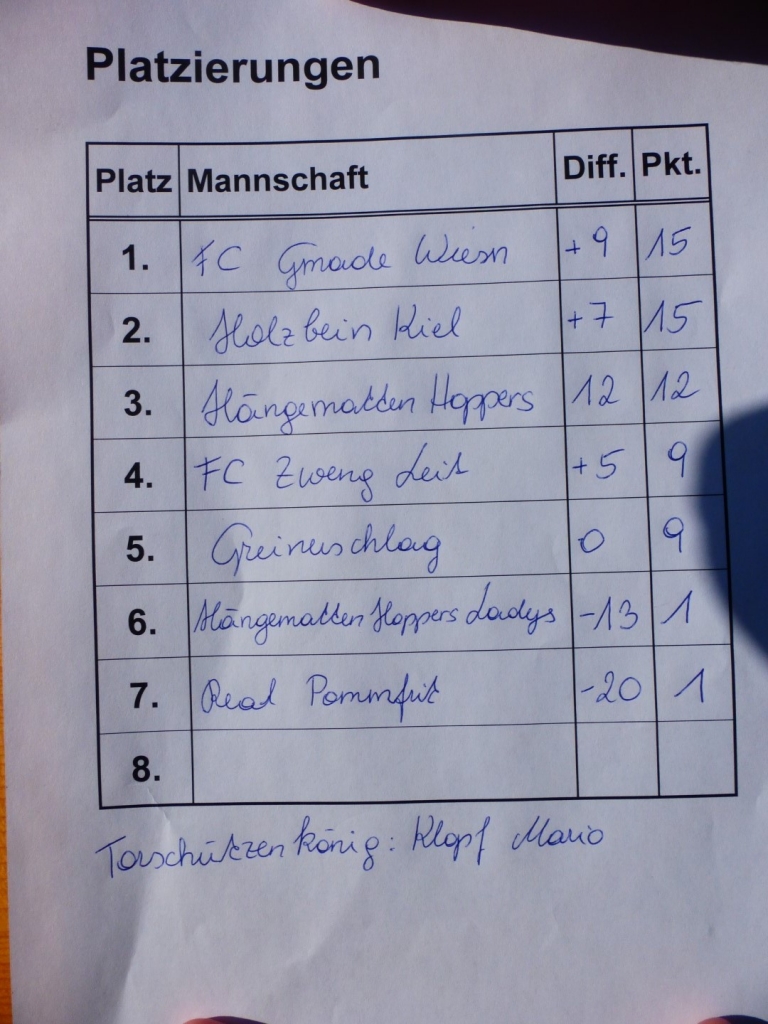 Platzierungen
Platz Mannschaft Diff. Pkt.
1. FC Gmade Wiesn +9 15
2. Holzbein Kiel +7 15
3. Hängematten Hoppers 12 12
4. FC Zweng Leit +5 9
5. Greinerschlag 0 9
6. Hängematten Hoppers Ladys -13 1
7. Real Pommfrit -20 1
8.
Torschützenkönig: Klopf Mario